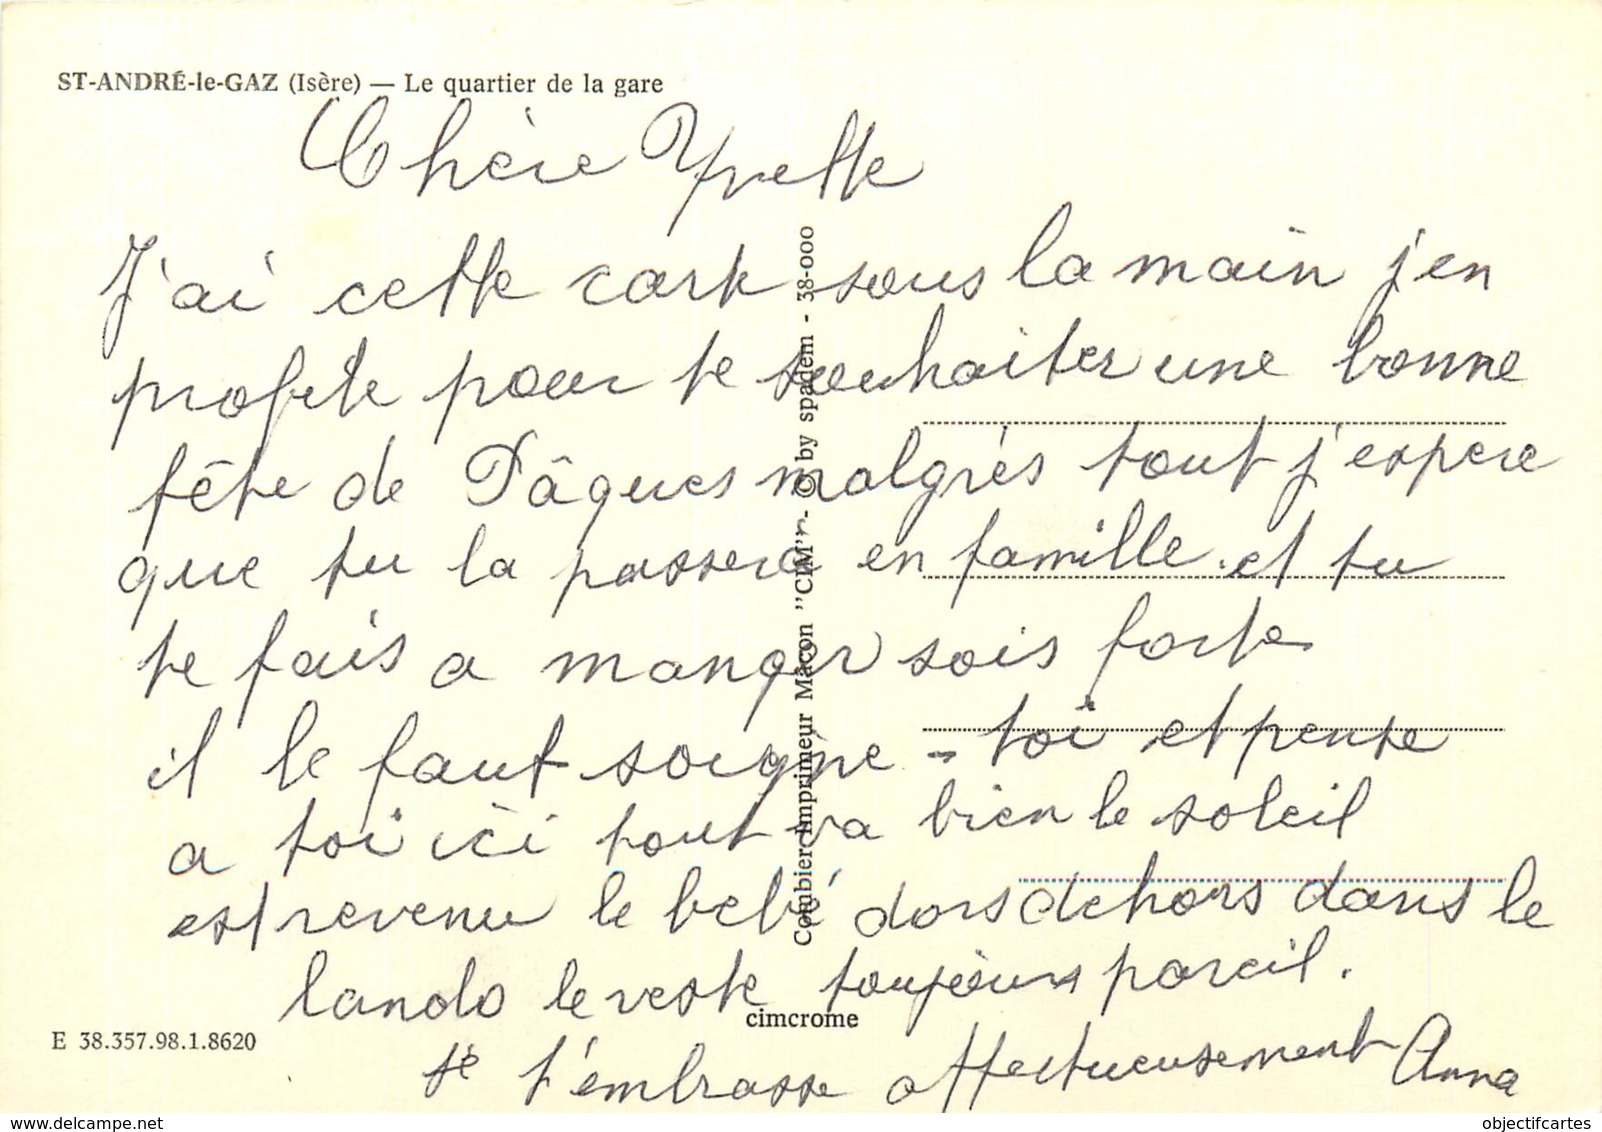 ST-ANDRÉ-le-GAZ (Isère) — Le quartier de la gare
Chère Yvette
J'ai cette carte sous la main j'en
profite pour te souhaiter une bonne
fête de Pâques malgrés tout j'espere
que tu la passera en famille. et tu
te fais a manger sois forte
il le faut soigne - toi et pense
a toi ici tout va bien le soleil
est revenu le bebé dors dehors dans le
lando le reste toujours pareil.
Je t'embrasse affectueusement Anna
Combier Imprimeur Mâcon "CIM" - © by spadem - 38-000
cimcrome
E 38.357.98.1.8620
www.delcampe.net
objectifcartes